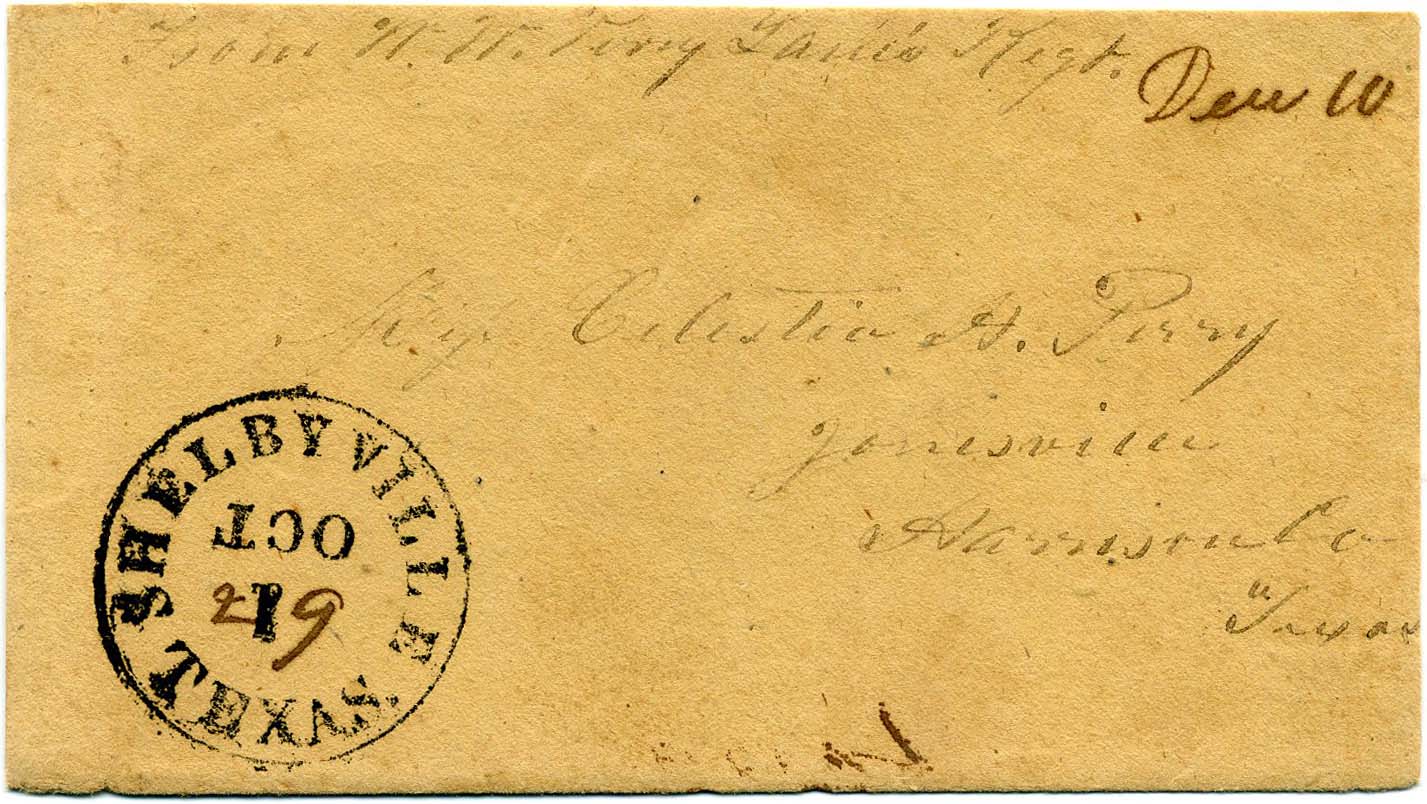 From W. W. Perry Lane's Regt.
Due 10
Miss Celestia A. Perry
Jonesville
Harrison Co
Texas
SHELBYVILLE TEXAS.
OCT
1
29